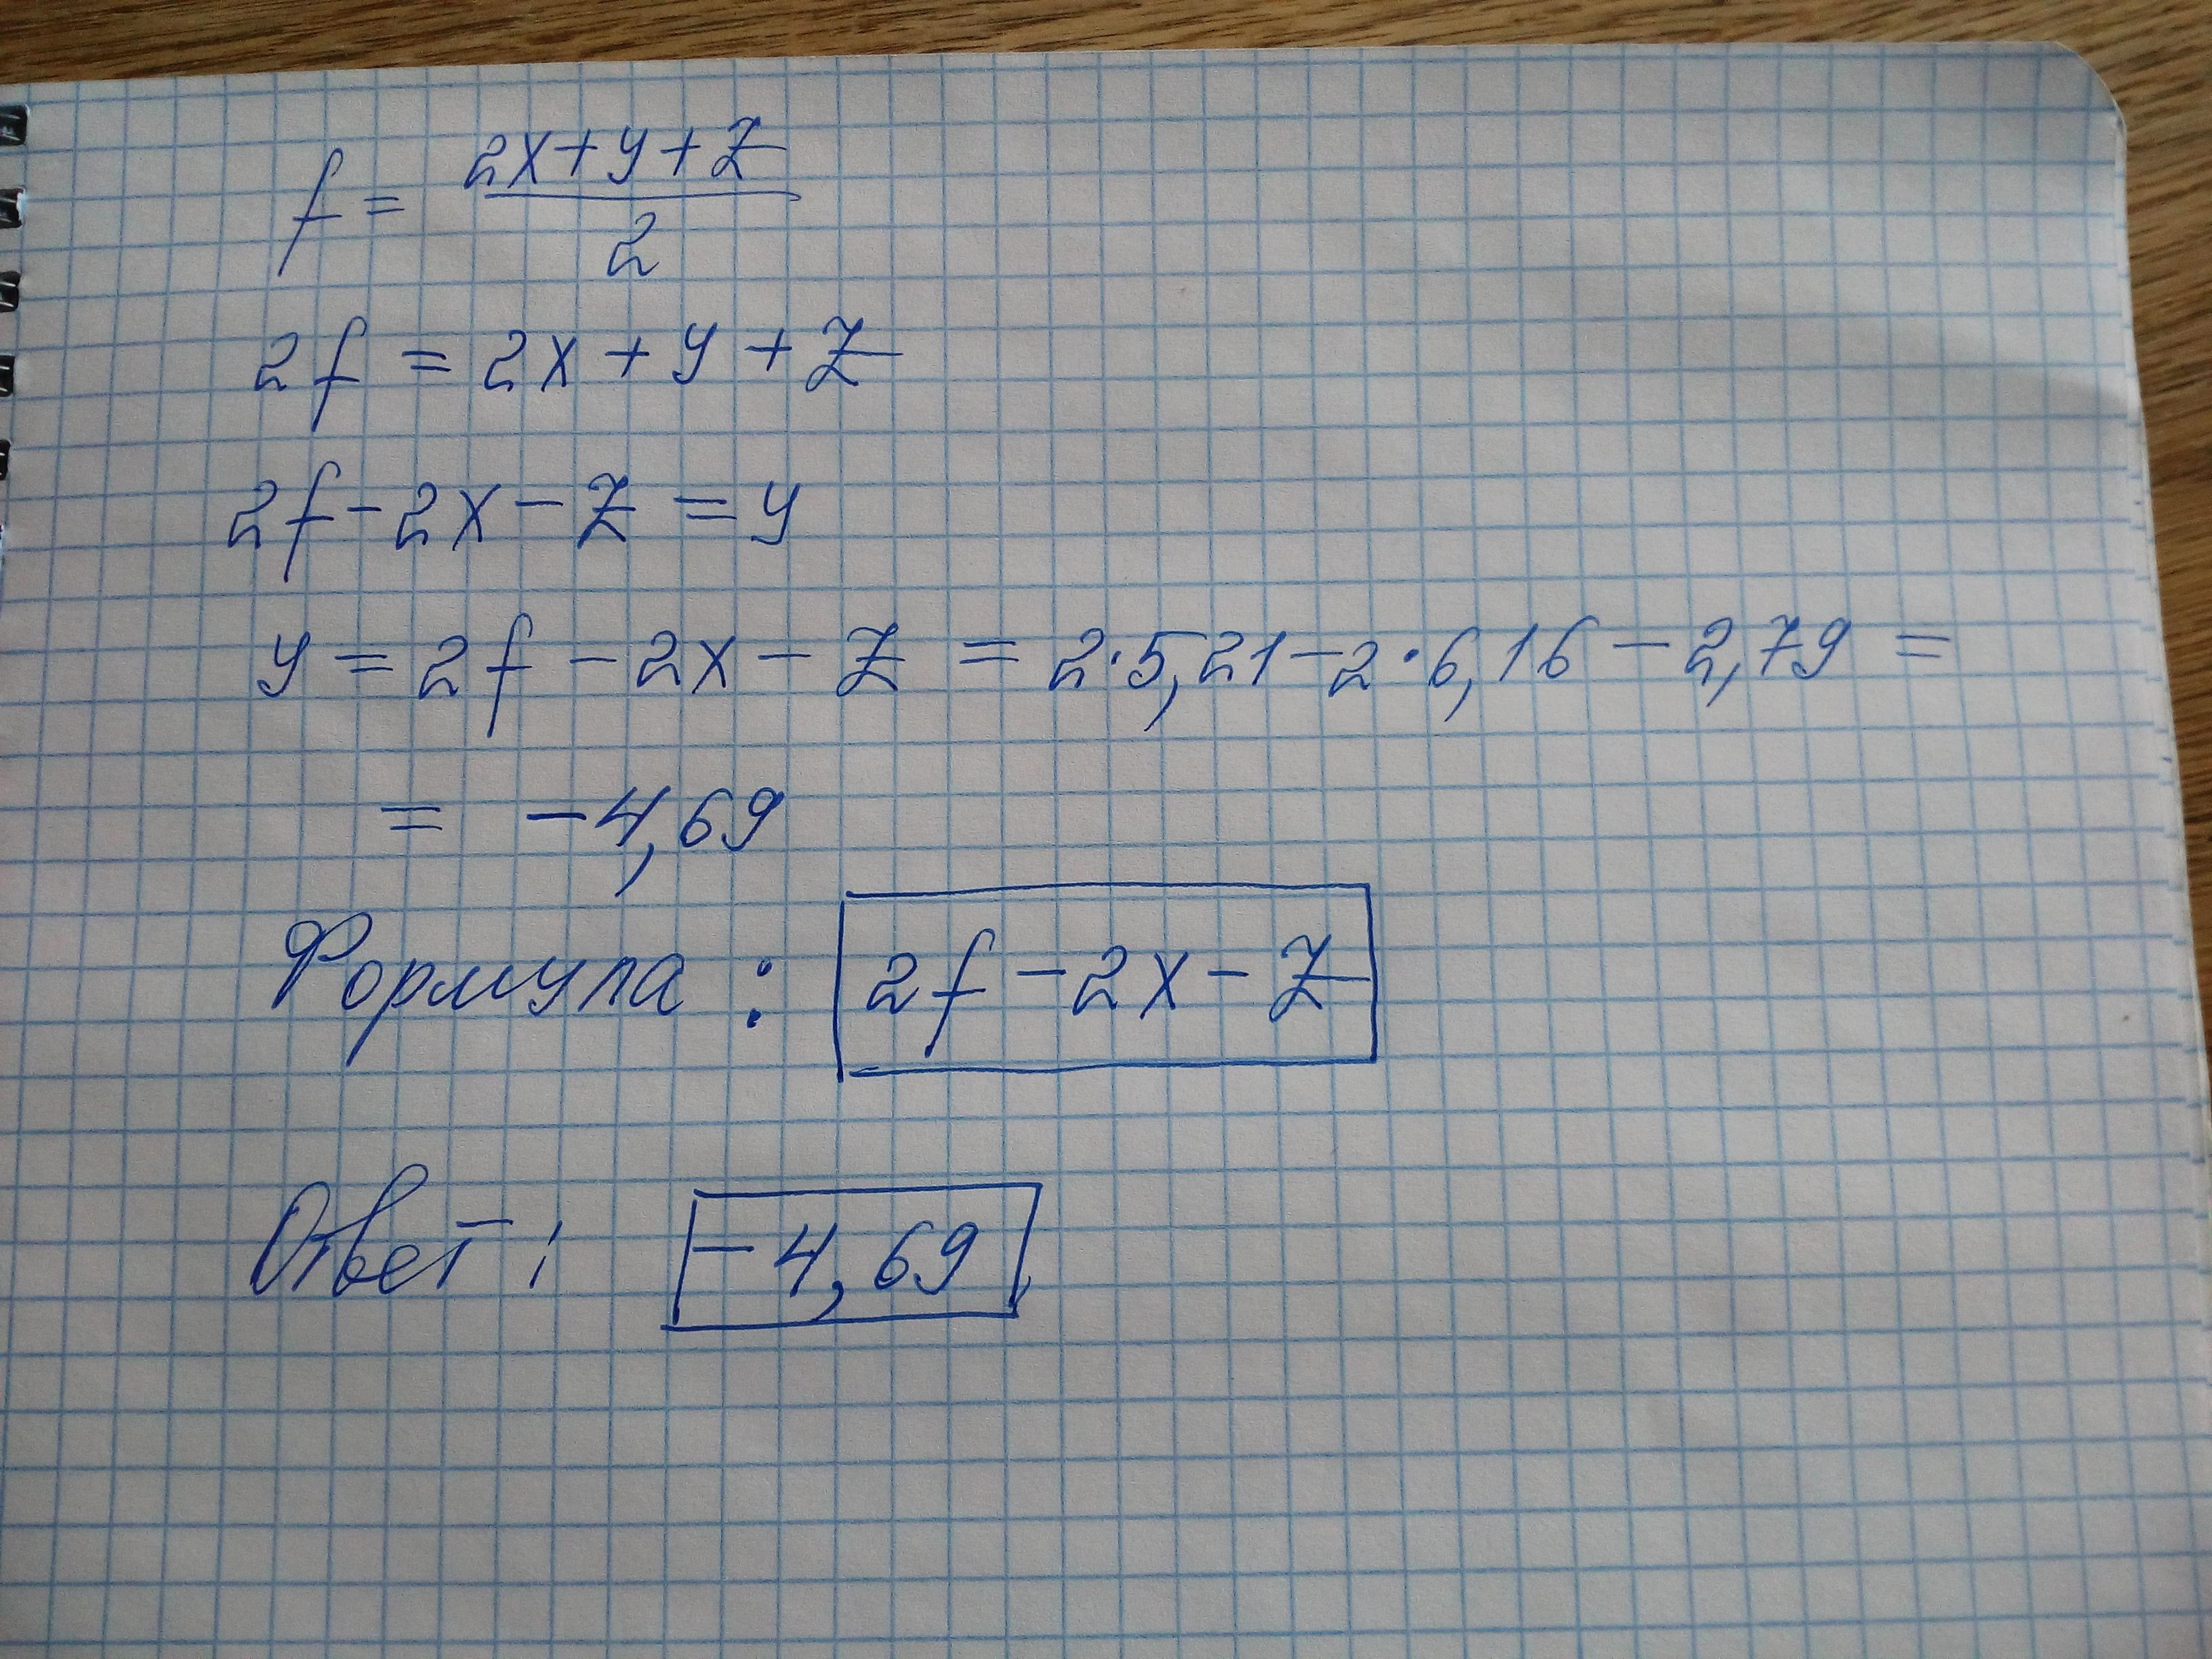 f = (2x+y+z)/2
2f = 2x + y + z
2f - 2x - z = y
y = 2f - 2x - z = 2·5,21 - 2·6,16 - 2,79 =
= -4,69
Формула : 2f - 2x - z
Ответ : -4,69